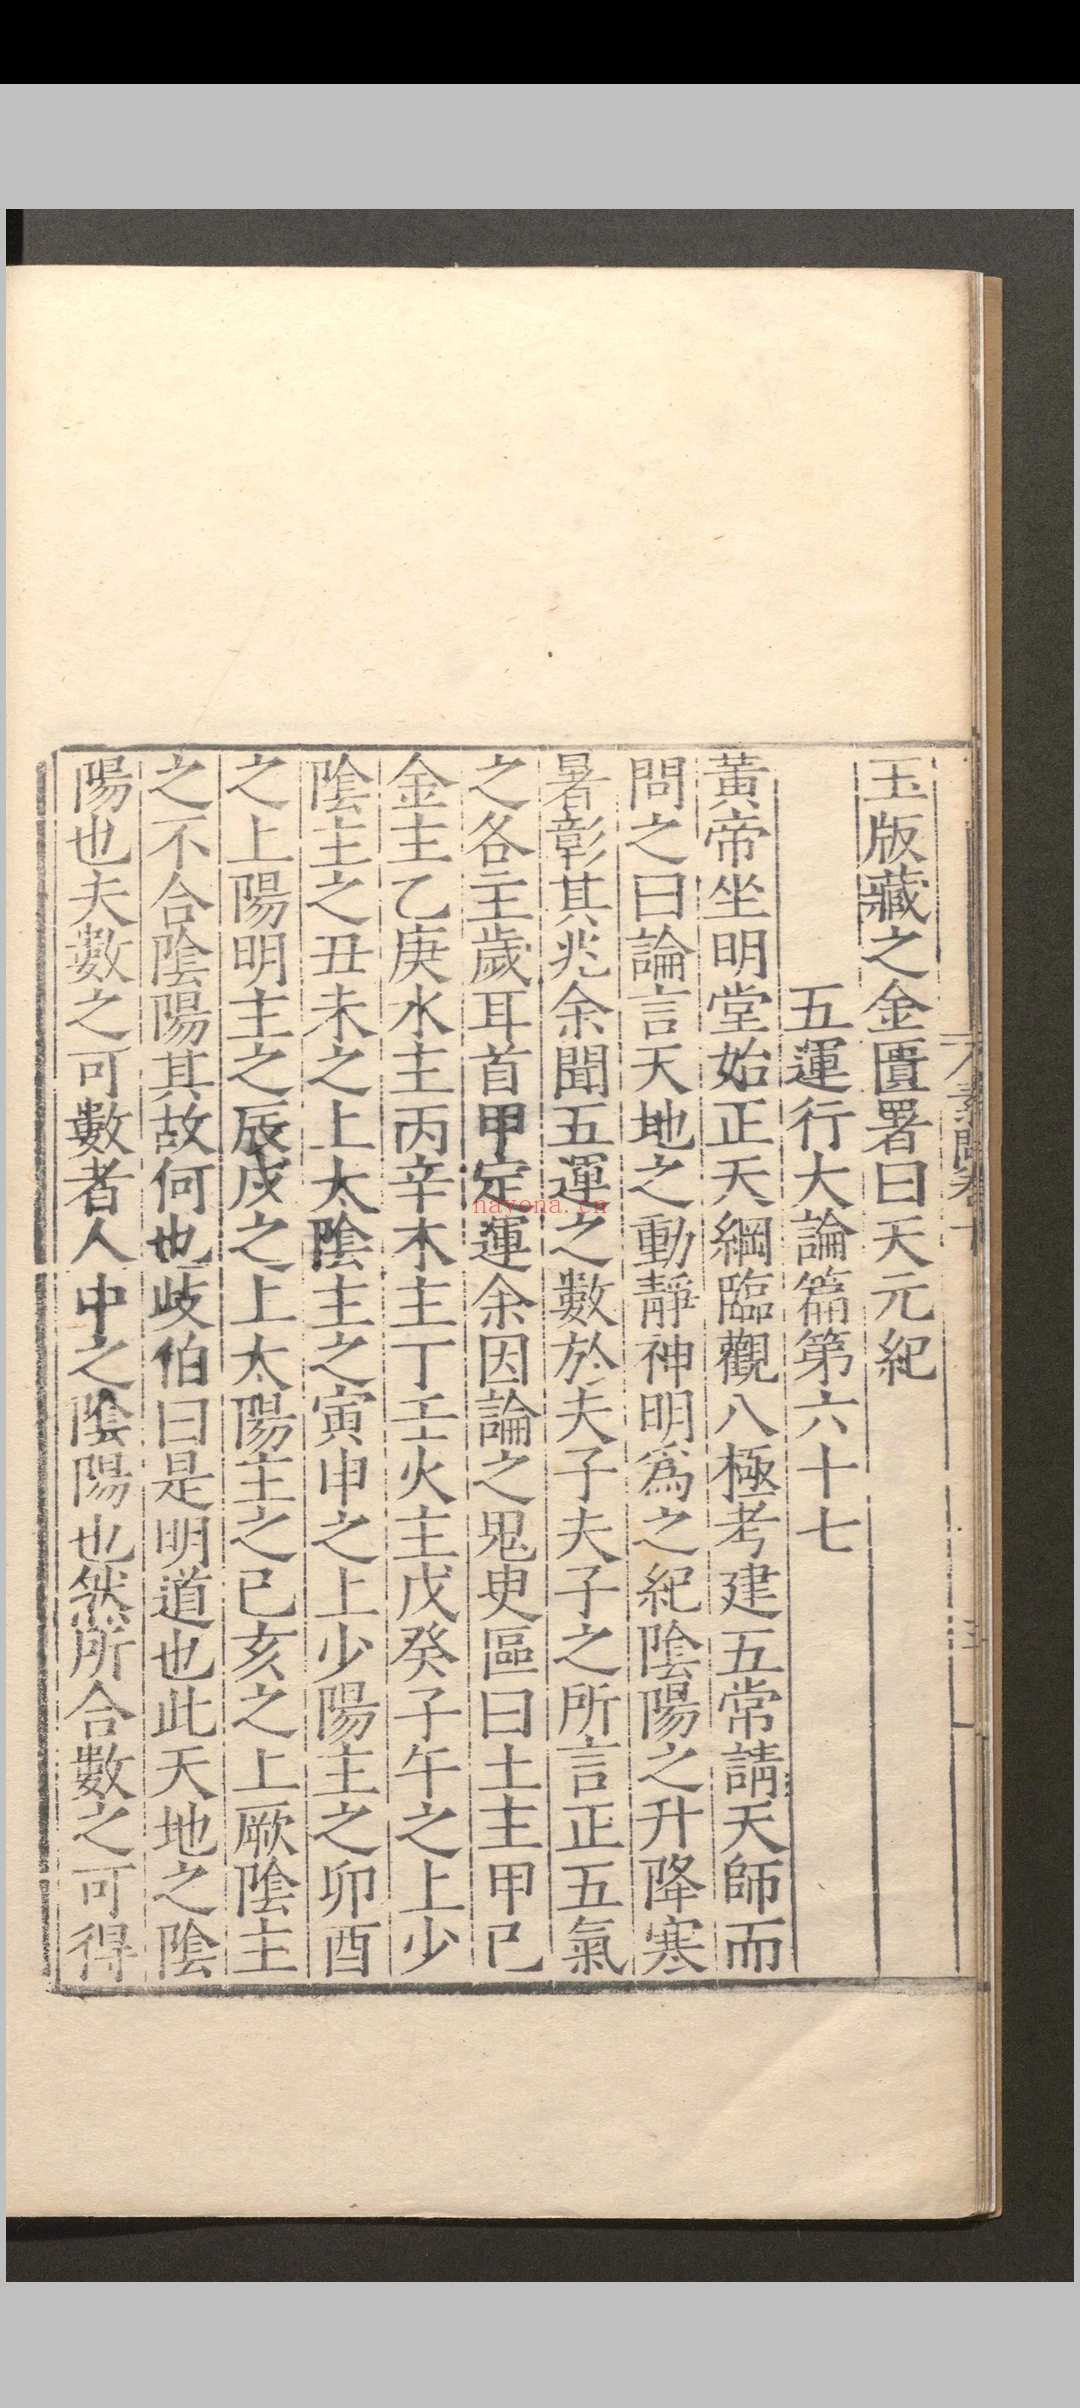 玉版藏之金匱署曰天元紀
五運行大論篇第六十七
黃帝坐明堂始正天綱臨觀八極考建五常請天師而
問之曰論言天地之動靜神明爲之紀陰陽之升降寒
暑彰其兆余聞五運之數於夫子夫子之所言正五氣
之各主歲耳首甲定運余因論之鬼臾區曰土主甲己
金主乙庚水主丙辛木主丁壬火主戊癸子午之上少
陰主之丑未之上太陰主之寅申之上少陽主之卯酉
之上陽明主之辰戌之上太陽主之巳亥之上厥陰主
之不合陰陽其故何也歧伯曰是明道也此天地之陰
陽也夫數之可數者人中之陰陽也然所合數之可得
nayona.cn